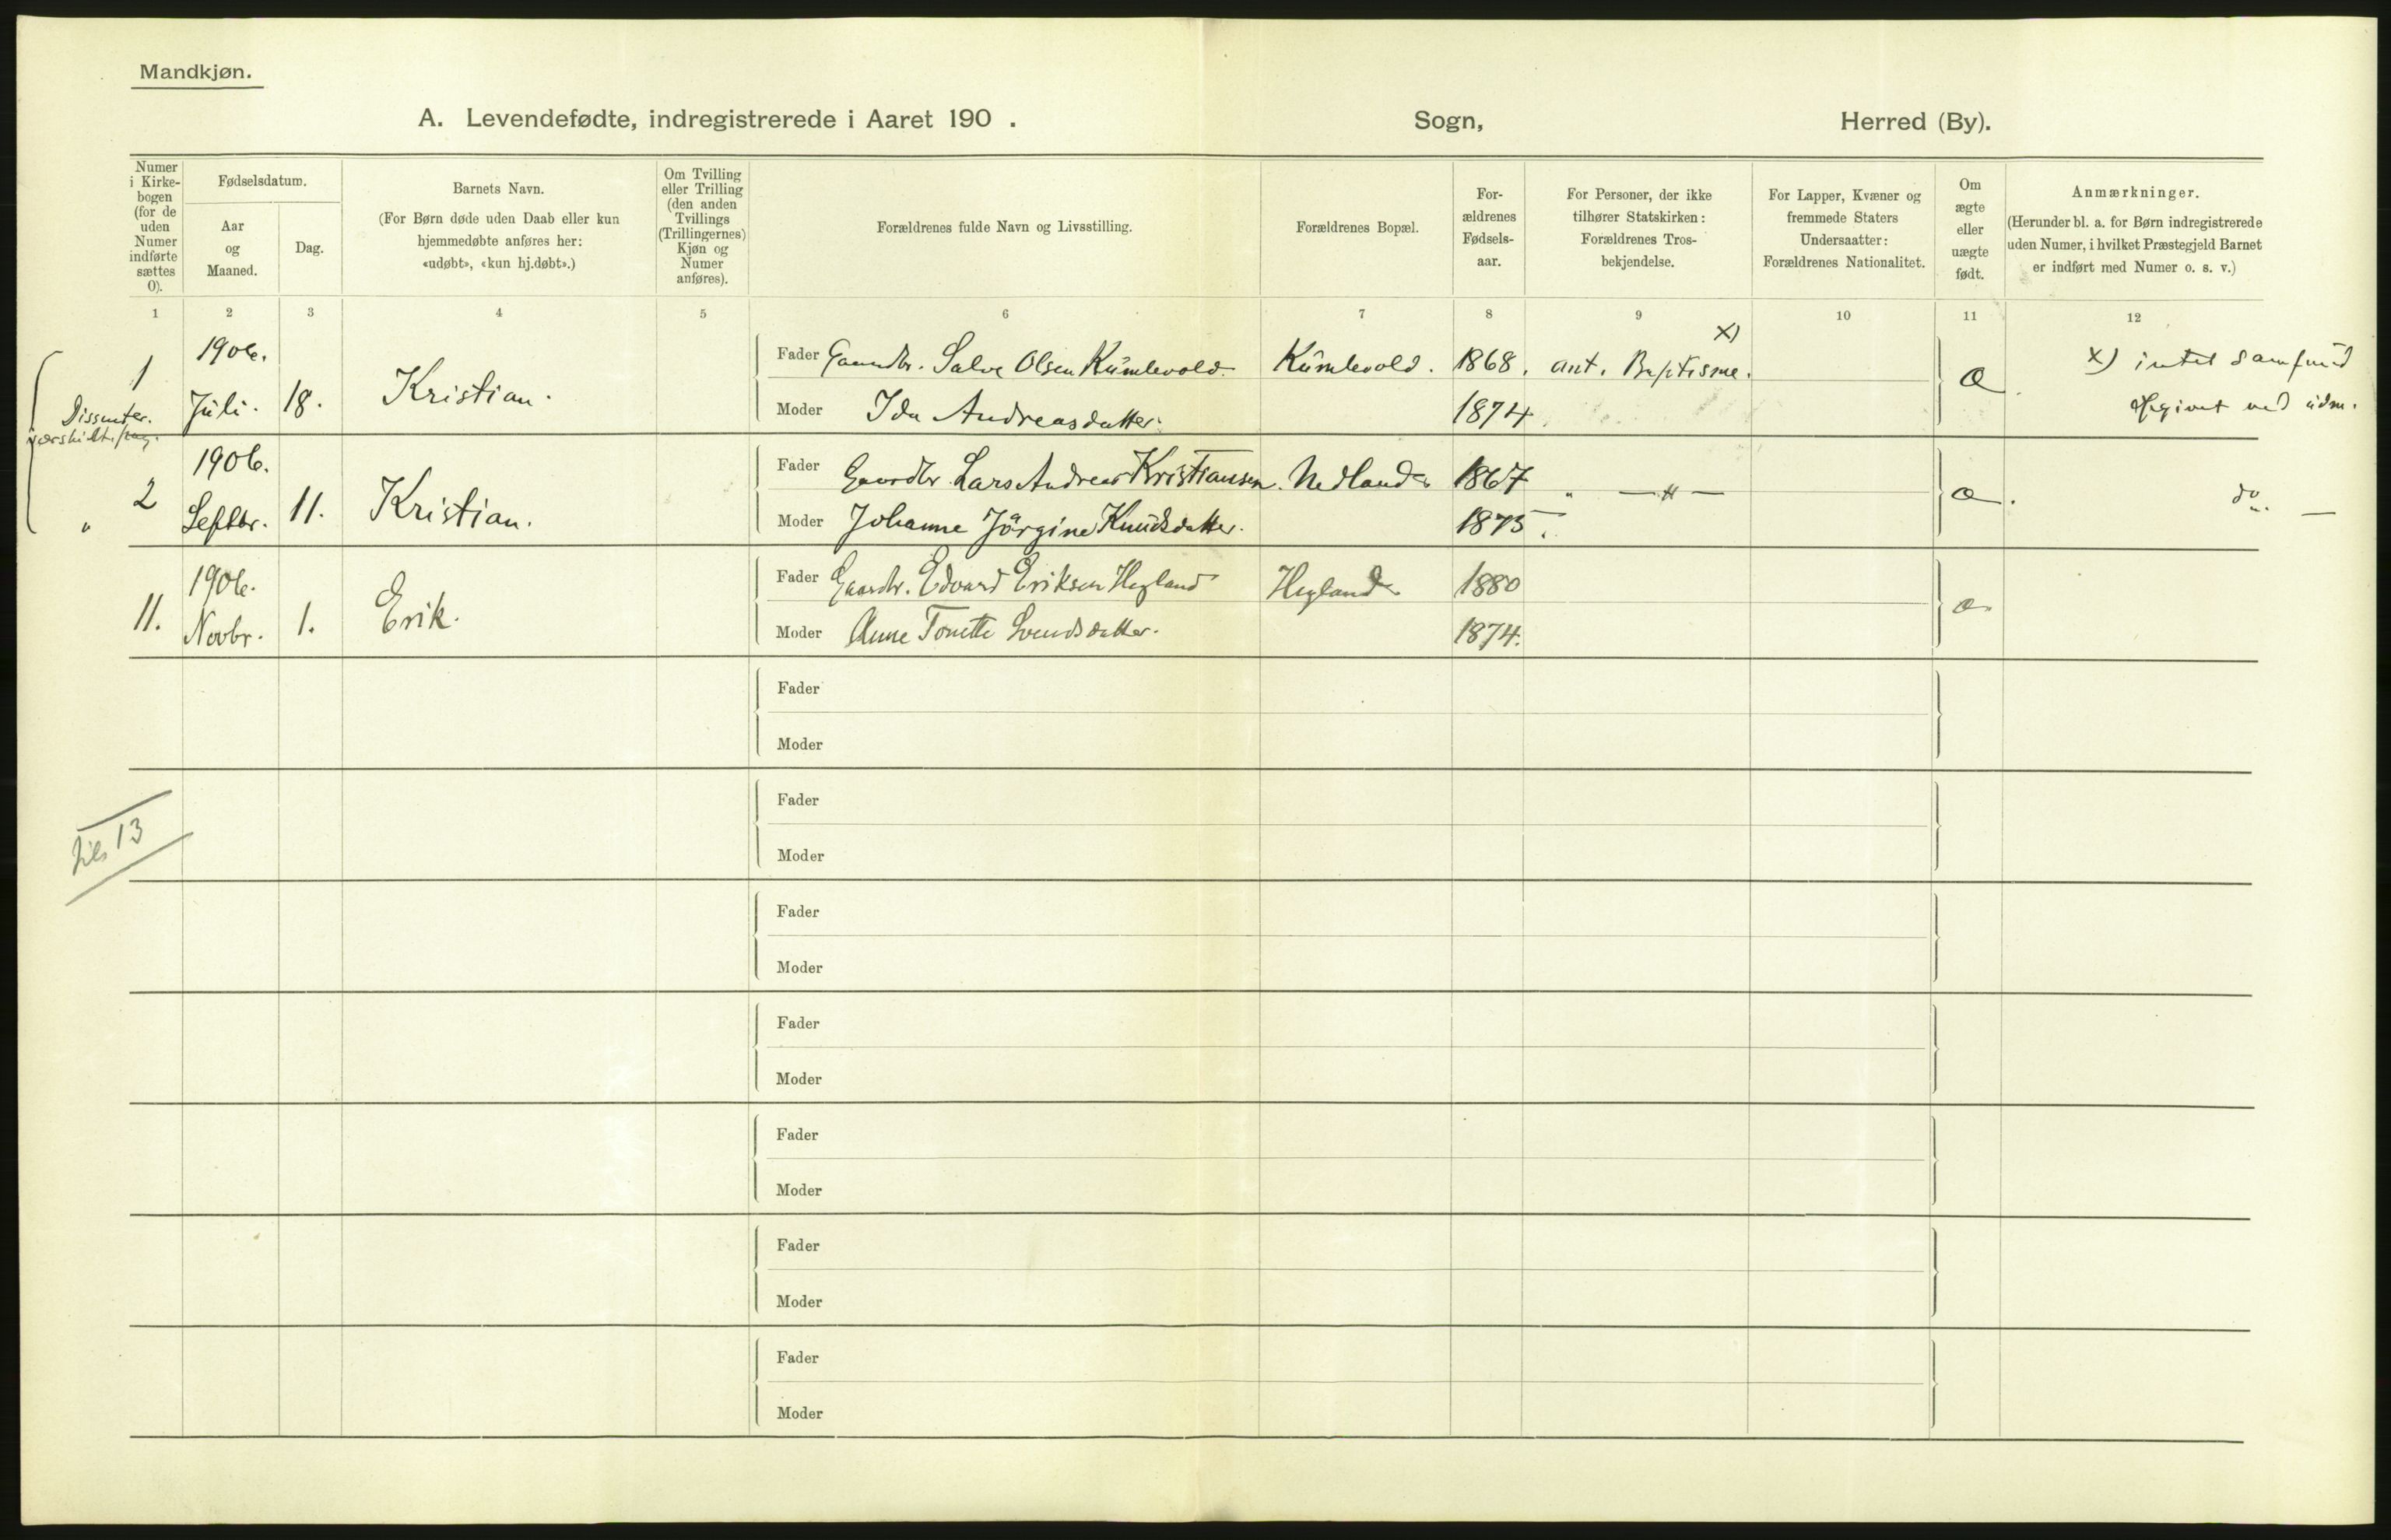 Mandkjøn.
A. Levendefødte, indregistrerede i Aaret 190 . Sogn, Herred (By).
Numer i Kirke-bogen (for de uden Numer indførte sættes 0).
Fødselsdatum.
Aar og Maaned.
Dag.
Barnets Navn.
(For Børn døde uden Daab eller kun hjemmedøbte anføres her: «udøbt», «kun hj.døbt».)
Om Tvilling eller Trilling (den anden Tvillings (Trillingernes) Kjøn og Numer anføres).
Forældrenes fulde Navn og Livsstilling.
Forældrenes Bopæl.
For-ældrenes Fødsels-aar.
For Personer, der ikke tilhører Statskirken: Forældrenes Tros-bekjendelse.
For Lapper, Kvæner og fremmede Staters Undersaatter: Forældrenes Nationalitet.
Om ægte eller uægte født.
Anmærkninger.
(Herunder bl. a. for Børn indregistrerede uden Numer, i hvilket Præstegjeld Barnet er indført med Numer o. s. v.)
1 2 3 4 5 6 7 8 9 10 11 12
Dissenter.
1 1906. Juli. 18. Kristian.
Fader Gaardbr. Salve Olsen Kumlevold. Kumlevold. 1868. ant. Baptisme. x)
Moder Ida Andreasdatter. 1874
x) intet samfund
opgivet ved
2 1906. Septbr. 11. Kristian.
Fader Gaardbr Lars Andreas Kristiansen. Nedland 1867 " — " —
Moder Johanne Jörgine Knudsdatter. 1875.
do. —
11. 1906. Novbr. 1. Erik.
Fader Gaardbr. Edvard Eriksen Hegland Hegland 1880
Moder Anne Tonette Svendsdatter. 1874.
Fader
Moder
Fader
Moder
13
Fader
Moder
Fader
Moder
Fader
Moder
Fader
Moder
Fader
Moder